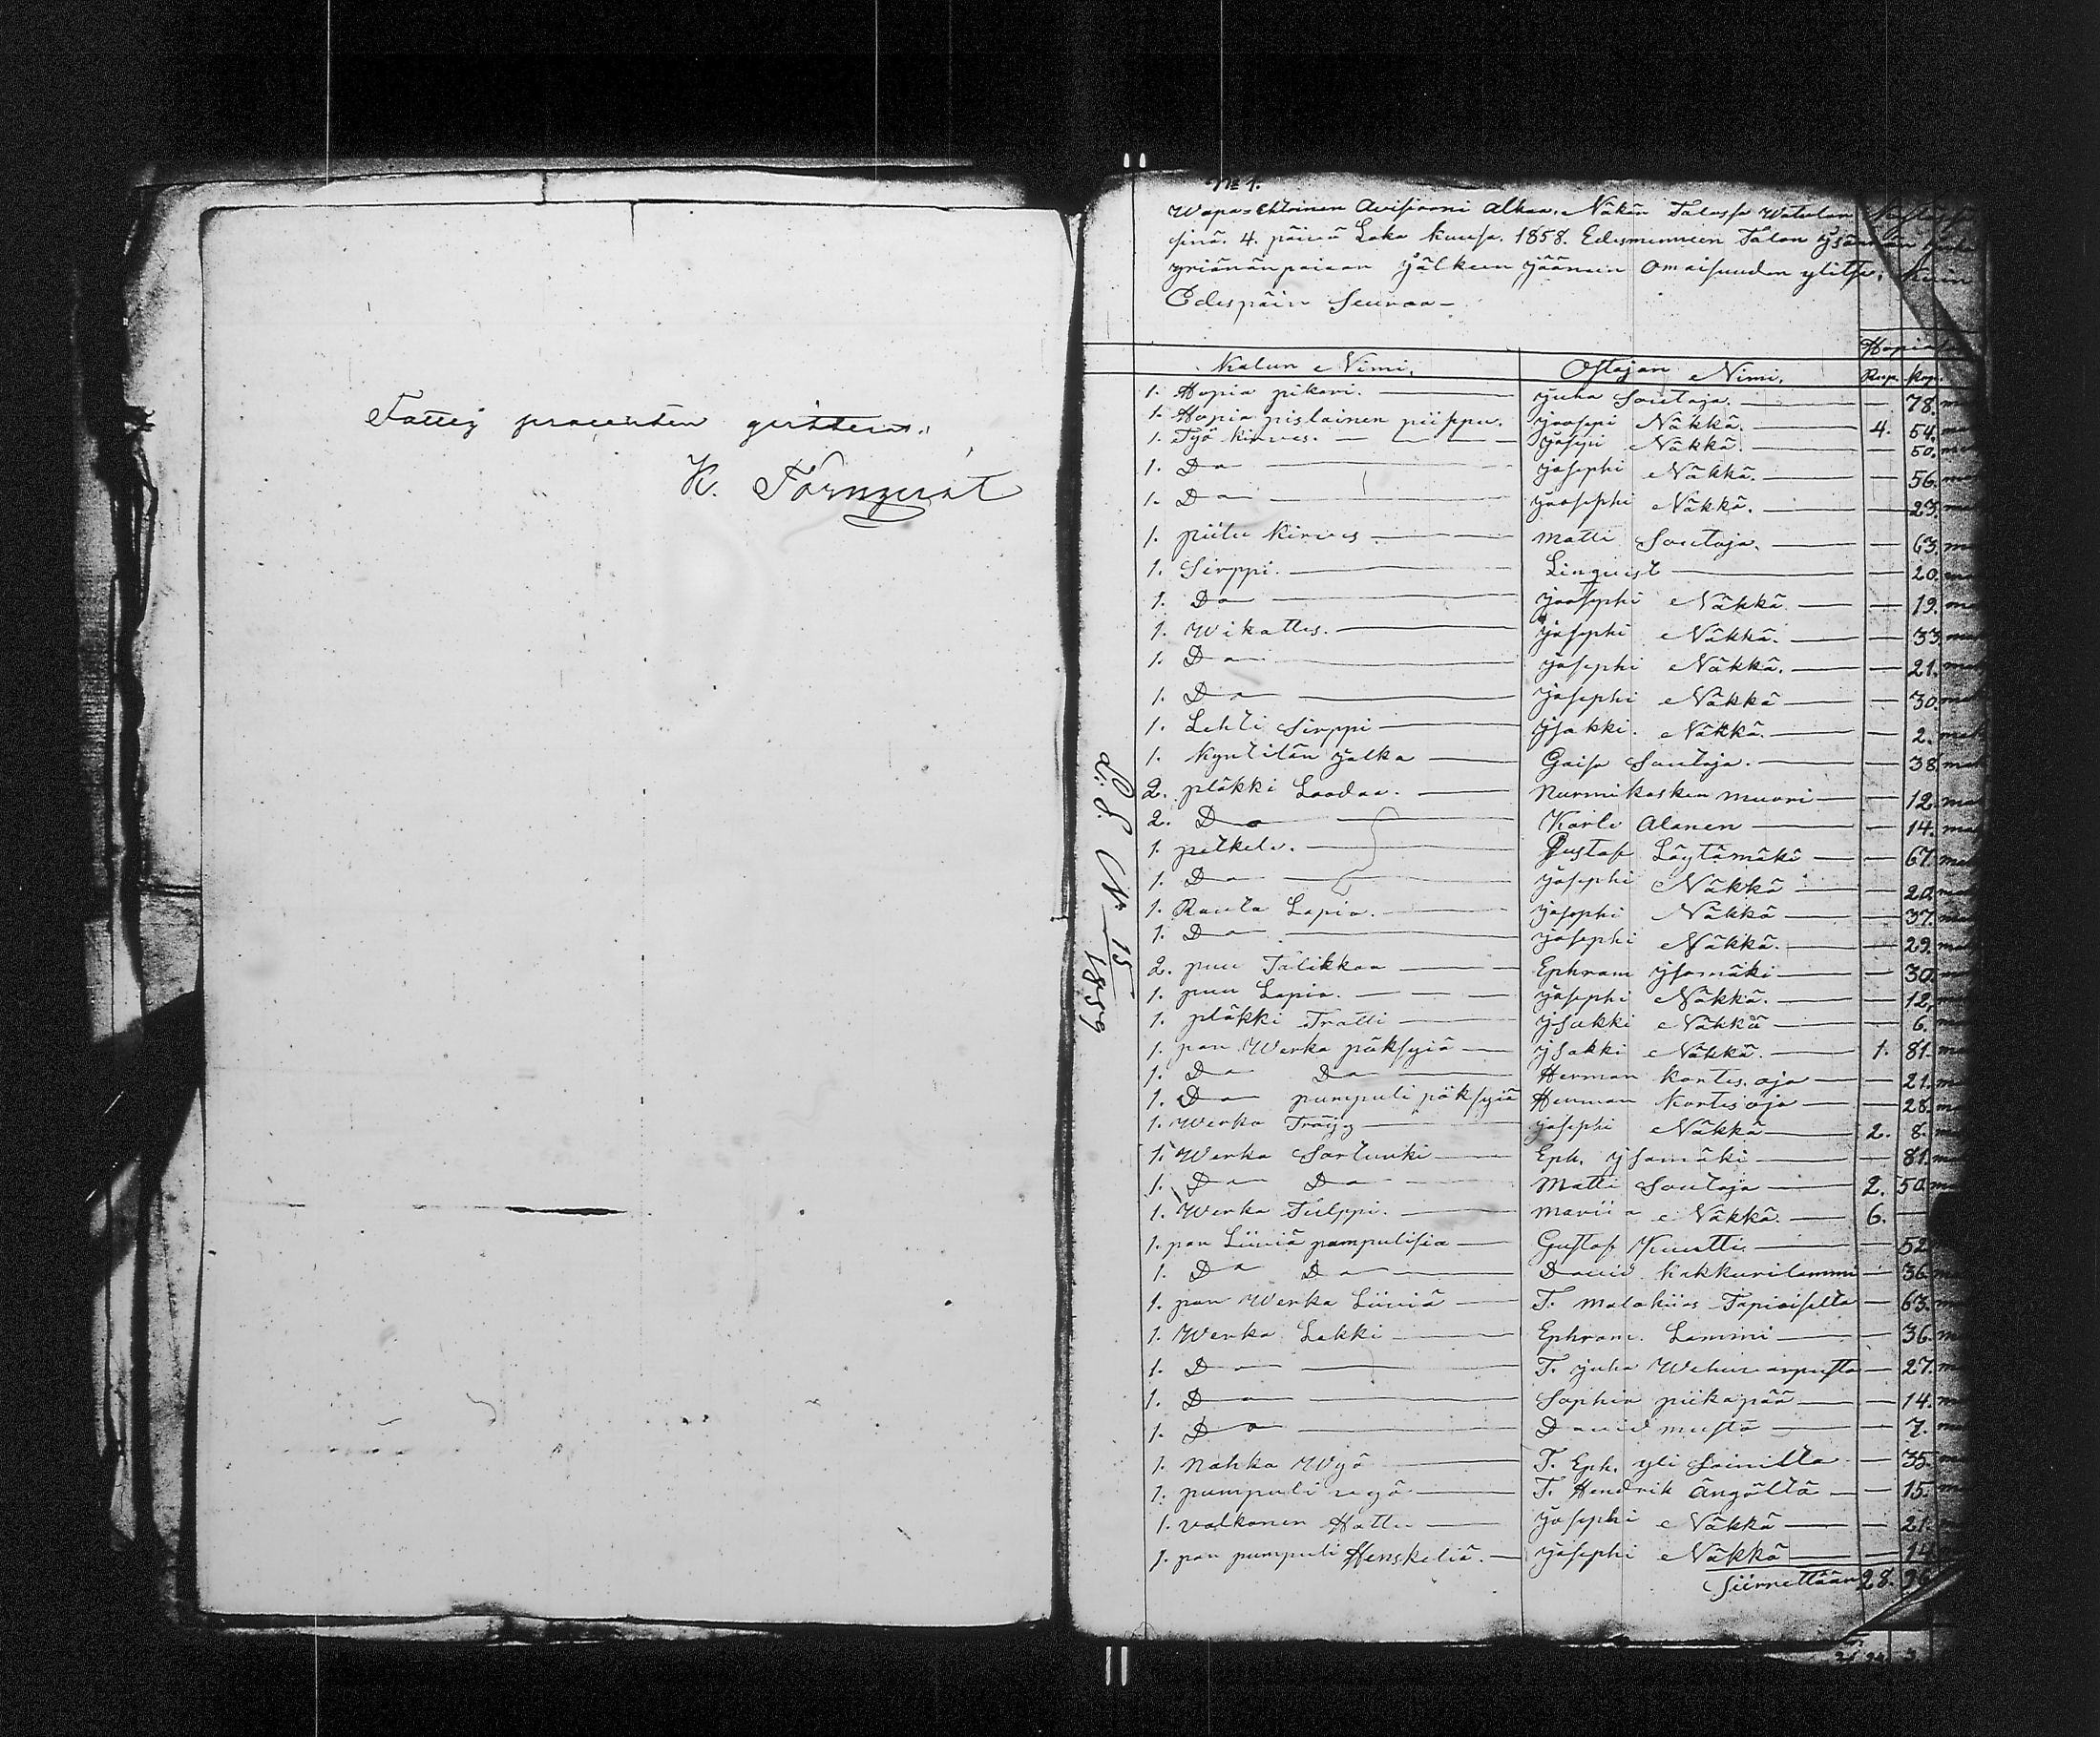 Fattig procenten
K. Törnqvist
L: S. No 15/1859
No 1.
Wapaehtoinen Avisiooni Alkaa. Näkän Talossa Watulan
sinä. 4. päivä Loka kuusa. 1858. Edesmenneen Talon ysännän
yriänän poian jälkeen jääneen Omaisuuden ylitse, kuin
Edespäin Seuraa —
Hopiasa
Kalun Nimi. Ostajan Nimi. Rup. Kop.
1. Hopia pikari. — juha Soutaja. — 78.
1. Hopia pislainen piippu. joosepi Näkkä. — 4. 54.
1. Työ kirves. — josepi Näkkä. — 50.
1. Do — josephi Näkkä. — 56.
1. Do — joosephi Näkkä. — 23.
1. piilu kirves — Matti Soutaja. — 63.
1. Sirppi. — Linqvist — 20.
1. Do — joosephi Näkkä. — 19.
1. Wikattes. — josephi Näkkä. — 33.
1. Do — josephi Näkkä. — 21.
1. Do — josephi Näkkä — 30.
1. Lehti Sirppi — jsakki. Näkkä. — 2.
1. kyntilän jalka — Gaisa Soutaja. — 38.
2. pläkki Laadaa. — Nurmikosken muori — 12.
2. Do — Karle Alanen — 14.
1. petkele. — Gustaf Löytämäki — 67.
1. Do — josephi Näkkä — 20.
1. Rauta Lapia. — josephi Näkkä — 37.
1. Do — josephi Näkkä. — 29.
2. puu Talikkaa — Ephram ysomäki — 30.
1. puu Lapia. — josephi Näkkä. — 12.
1. pläkki Tratti — jsakki Näkkä — 6.
1. par Werka pöksyiä — jsakki Näkkä. — 1. 81.
1. Do Do — Herman kortes.oja — 21.
1. Do pumpuli pöksyiä Herman kortisoja — 28.
1. Werka Tröijy — josephi Näkkä — 2. 8.
1. Werka Sortuuki — Eph. ysomäki — 81.
1. Do Do — Matti Soutaja — 2. 50.
1. Werka Tulppi. — Mariia Näkkä. — 6. —
1. par Liiviä pumpulisia — Gustaf Kuutti. — 52.
1. Do Do — David kakkurilammi — 36.
1. par Werka Liiviä — T. Malakias Tapioiselta — 63.
1. Werka Lakki — Ephram. Lammi — 36.
1. Do — T. juha — 27.
1. Do — Sophia piikapää — 14.
1. Do — David musta — 7.
1. Nahka Wyö — T. Eph. yli Soinilta — 35.
1. pumpuli vyö — T. Hendrik Ängöltä — 15.
1. valkonen Hattu — josephi Näkkä — 21.
1. par pumpuli Henskeliä. — josephi Näkkä — 14.
Siirrettään 28. 96